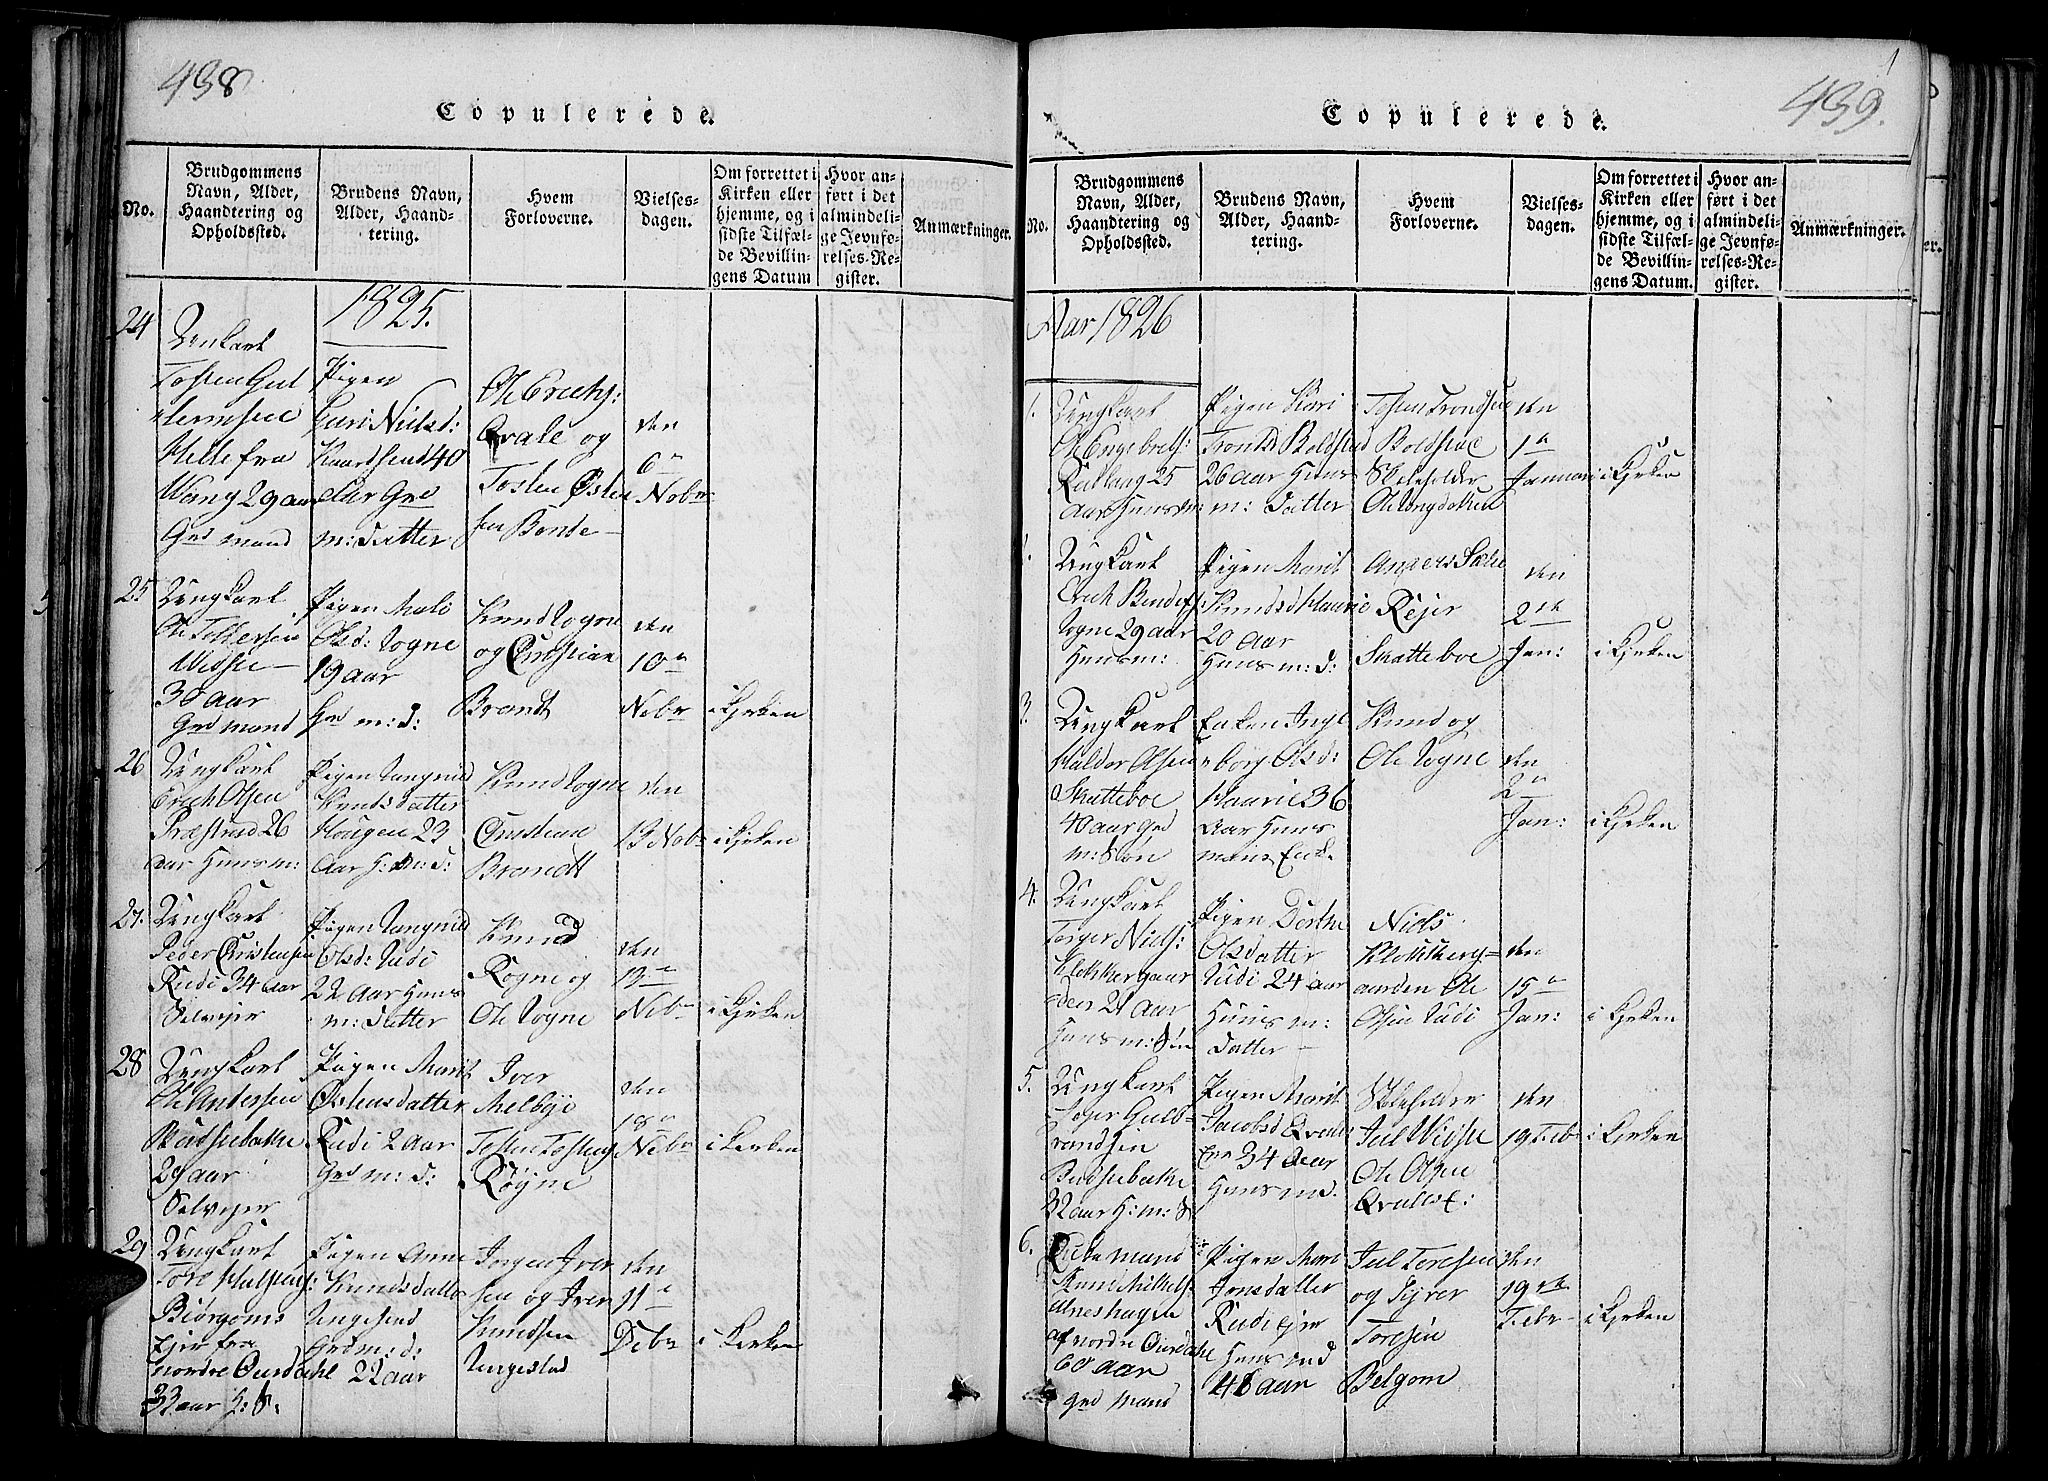 438
Copulerede.
No.
Brudgommens
Navn, Alder,
Haandtering og
Opholdssted.
Brudens Navn,
Alder, Haand-
tering.
Hvem
Forloverne.
Vielses-
dagen.
Om forrettet i
Kirken eller
hjemme, og i
sidste Tilfæl-
de Bevillin-
gens Datum
Hvor an-
ført i det
almindeli-
ge Jevnfø-
relses-Re-
gister.
Anmærkninger.
1825.
24
Ungkarl
Tosten Gul
Helle fra
Wang 29 aar
Grd mand
Pigen
Guri Nielsd:
40
Aar Grd
m: Datter
Ole Erichs:
Qvale og
Tosten Østen
sen Bonde
den
6te
Nobr
25
Ungkarl
Ole
30 aar
Grd mand
Pigen Mali
Olsd: Rogne
19 aar
Grd m: d:
Knud Rogne
og Christian
Brandt
den
10de
Nobr
i Kjrken
26
Ungkarl
Erich Olsen
Præstrud 26
aar Huusm:
Pigen Ragnild
Knudsdatter
Hougen 23
Aar H: m: d:
Knud Rogne
Christian
Brandt
den
13 Nobr
i Kjrken
27.
Ungkarl
Peder Christensen
Rudi 34 aar
Selvejer
Pigen Ragnild
Olsd: Rudi
22 Aar Huus
m: Datter
Knud
Rogne og
Ole Rogne
den
13de
Nobr
i Kjrken
28
Ungkarl
Ole Andersen
Skudsebakke
29 aar
Selvejer
Pigen Marit
Østensdatter
Rudi 2 aar
Grd m: d:
Iver
Melbye
Tosten Tostens
Rogne
den
18de
Nobr
i Kirken
29
Ungkarl
Tore
Biørgoms
Ejer fra
nordre Ourdahl
33 aar G: S:
Pigen Anne
Knudsdatter
Ungestad
Grd m: d:
22 aar
Jørgen Iver
sen og Iver
Knudsen
Ungestad
den
11te
Debr
i Kirken
1
439.
Copulerede.
No.
Brudgommens
Navn, Alder,
Haandtering og
Opholdssted.
Brudens Navn,
Alder, Haand-
tering.
Hvem
Forloverne.
Vielses-
dagen.
Om forrettet i
Kirken eller
hjemme, og i
sidste Tilfæl-
de Bevillin-
gens Datum.
Hvor an-
ført i det
almindeli-
ge Jevnfø-
relses-Re-
gister.
Anmærkninger.
Aar 1826
1.
Ungkarl
Ole Engebrets:
25
Aar Huusm:
Pigen Kari
Tronds Boldstad
26 aar Huus
m: Datter
Tosten Trondsen
Boldstad
Skoleholder
den
1te
Januari
i Kjrken
Ungkarl
Erich
Rogne 29 aar
Huusm:
Pigen Marit
Knudsd Haarie
20 Aar
Huus m: d:
Anders
Rejer
Skatteboe
den
2den
Jan:
i Kjrken
3.
Ungkarl
Haldor Olsen
Skatteboe
40 aar Grd
m: Søn
Enken Inge
borg Olsd:
Haarie 36
Aar Huus
mans Enke
Knud og
Ole Rogne
den
2den
Jan:
i Kjrken
4.
Ungkarl
Torger Niels:
Klokkergaar
den 21 Aar
Huus m: Søn
Pigen Dorthe
Olsdatter
Rudi 24 aar
Huus m:
Datter
Niels
Klokkerg=
aarden Ole
Olsen Rudi
den
15de
Jan:
i Kjrken
5.
Ungkarl
Guld=
brandsen
32 aar H: m: S
Pigen Marit
Jacobsd
34 Aar
Huus m d.
Skoleholder
Jul
Ole Olsen
den
19 Feb
i Kjrken
6.
Enkemand
af nordre Ourdahl
60 aar
Grd mand
Pigen Mari
Jonsdatter
Rudi ejer
Huus md
Aar
Jul Toresen
og
Toresen
Belgom
den
19de
Febr
i Kjrken